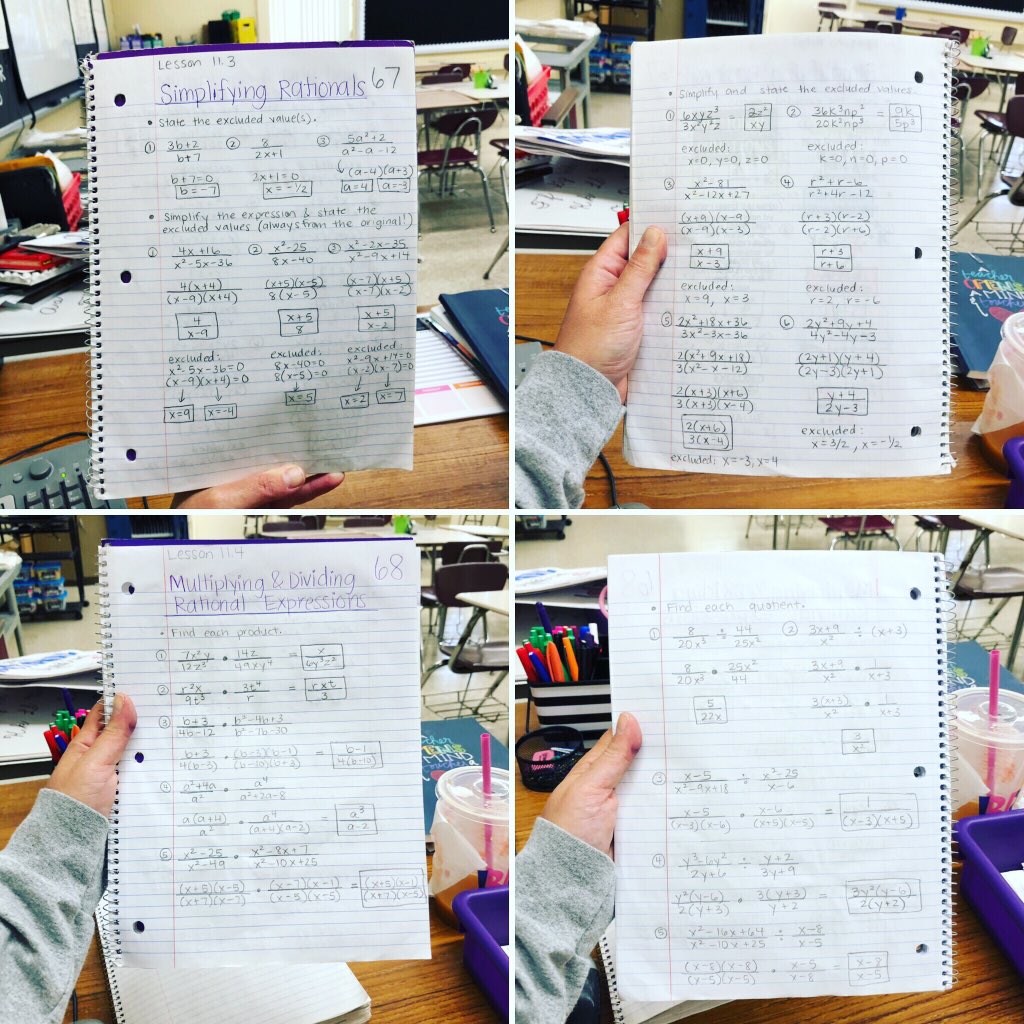 Lesson 11.3
Simplifying Rationals 67
• State the excluded value(s).
① 3b+2 / b+7 ② 8 / 2x+1 ③ 5a²+2 / a²-a-12
b+7=0 2x+1=0 (a-4)(a+3)
b=-7 x=-½ a=4 a=-3
• Simplify the expression & state the
excluded values (always from the original!)
① 4x+16 / x²-5x-36 ② x²-25 / 8x-40 ③ x²-2x-35 / x²-9x+14
4(x+4) / (x-9)(x+4) (x+5)(x-5) / 8(x-5) (x-7)(x+5) / (x-7)(x-2)
4 / x-9 x+5 / 8 x+5 / x-2
excluded: excluded: excluded:
x²-5x-36=0 8x-40=0 x²-9x+14=0
(x-9)(x+4)=0 8(x-5)=0 (x-2)(x-7)=0
x=9 x=-4 x=5 x=2 x=7
• Simplify and state the excluded values.
① 6xyz³ / 3x²y²z = 2z² / xy ② 36k³np² / 20k²np³ = 9k / 5p
excluded: excluded:
x=0, y=0, z=0 k=0, n=0, p=0
③ x²-81 / x²-12x+27 ④ r²+r-6 / r²+4r-12
(x+9)(x-9) / (x-9)(x-3) (r+3)(r-2) / (r-2)(r+6)
x+9 / x-3 r+3 / r+6
excluded: excluded:
x=9, x=3 r=2, r=-6
⑤ 2x²+18x+36 / 3x²-3x-36 ⑥ 2y²+9y+4 / 4y²-4y-3
2(x²+9x+18) / 3(x²-x-12) (2y+1)(y+4) / (2y-3)(2y+1)
2(x+3)(x+6) / 3(x+3)(x-4) y+4 / 2y-3
2(x+6) / 3(x-4) excluded:
x=3/2, x=-½
excluded: x=-3, x=4
Lesson 11.4
Multiplying & Dividing 68
Rational Expressions
• Find each product.
① 7x²y / 12z³ • 14z / 49xy⁴ = x / 6y³z²
② r²x / 9t³ • 3t⁴ / r = rxt / 3
③ b+3 / 4b-12 • b²-4b+3 / b²-7b-30
b+3 / 4(b-3) • (b-3)(b-1) / (b-10)(b+3) = b-1 / 4(b-10)
④ a²+4a / a² • a⁴ / a²+2a-8
a(a+4) / a² • a⁴ / (a+4)(a-2) = a³ / a-2
⑤ x²-25 / x²-49 • x²-8x+7 / x²-10x+25
(x+5)(x-5) / (x+7)(x-7) • (x-7)(x-1) / (x-5)(x-5) = (x+5)(x-1) / (x+7)(x-5)
• Find each quotient.
① 8 / 20x³ ÷ 44 / 25x² ② 3x+9 / x² ÷ (x+3)
8 / 20x³ • 25x² / 44 3x+9 / x² • 1 / x+3
5 / 22x 3(x+3) / x² • 1 / x+3
3 / x²
③ x-5 / x²-9x+18 ÷ x²-25 / x-6
x-5 / (x-3)(x-6) • x-6 / (x+5)(x-5) = 1 / (x-3)(x+5)
④ y³-6y² / 2y+6 ÷ y+2 / 3y+9
y²(y-6) / 2(y+3) • 3(y+3) / y+2 = 3y²(y-6) / 2(y+2)
⑤ x²-16x+64 / x²-10x+25 ÷ x-8 / x-5
(x-8)(x-8) / (x-5)(x-5) • x-5 / x-8 = x-8 / x-5